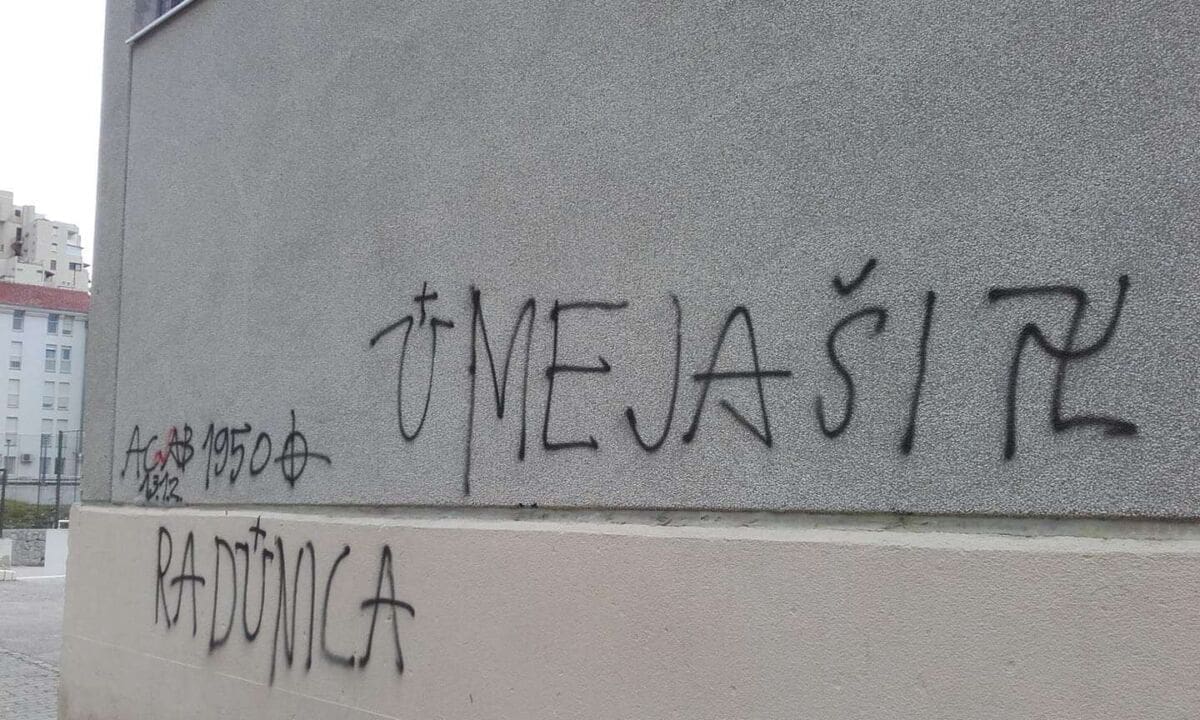 U MEJAŠI
ACAB 1950
13.12.
RADUNICA